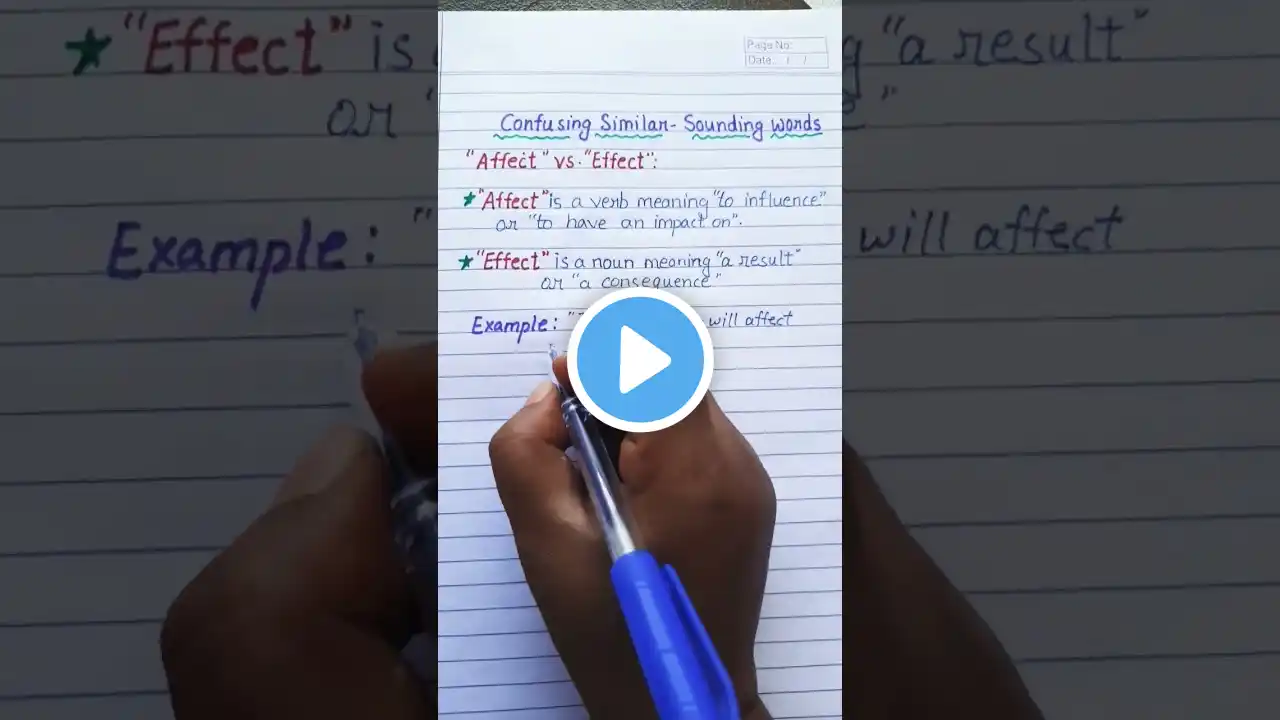 Page No:
Date: / /
Confusing Similar-Sounding words
"Affect" vs. "Effect":
★"Affect" is a verb meaning "to influence"
or "to have an impact on".
★"Effect" is a noun meaning "a result"
or "a consequence"
Example: " will affect